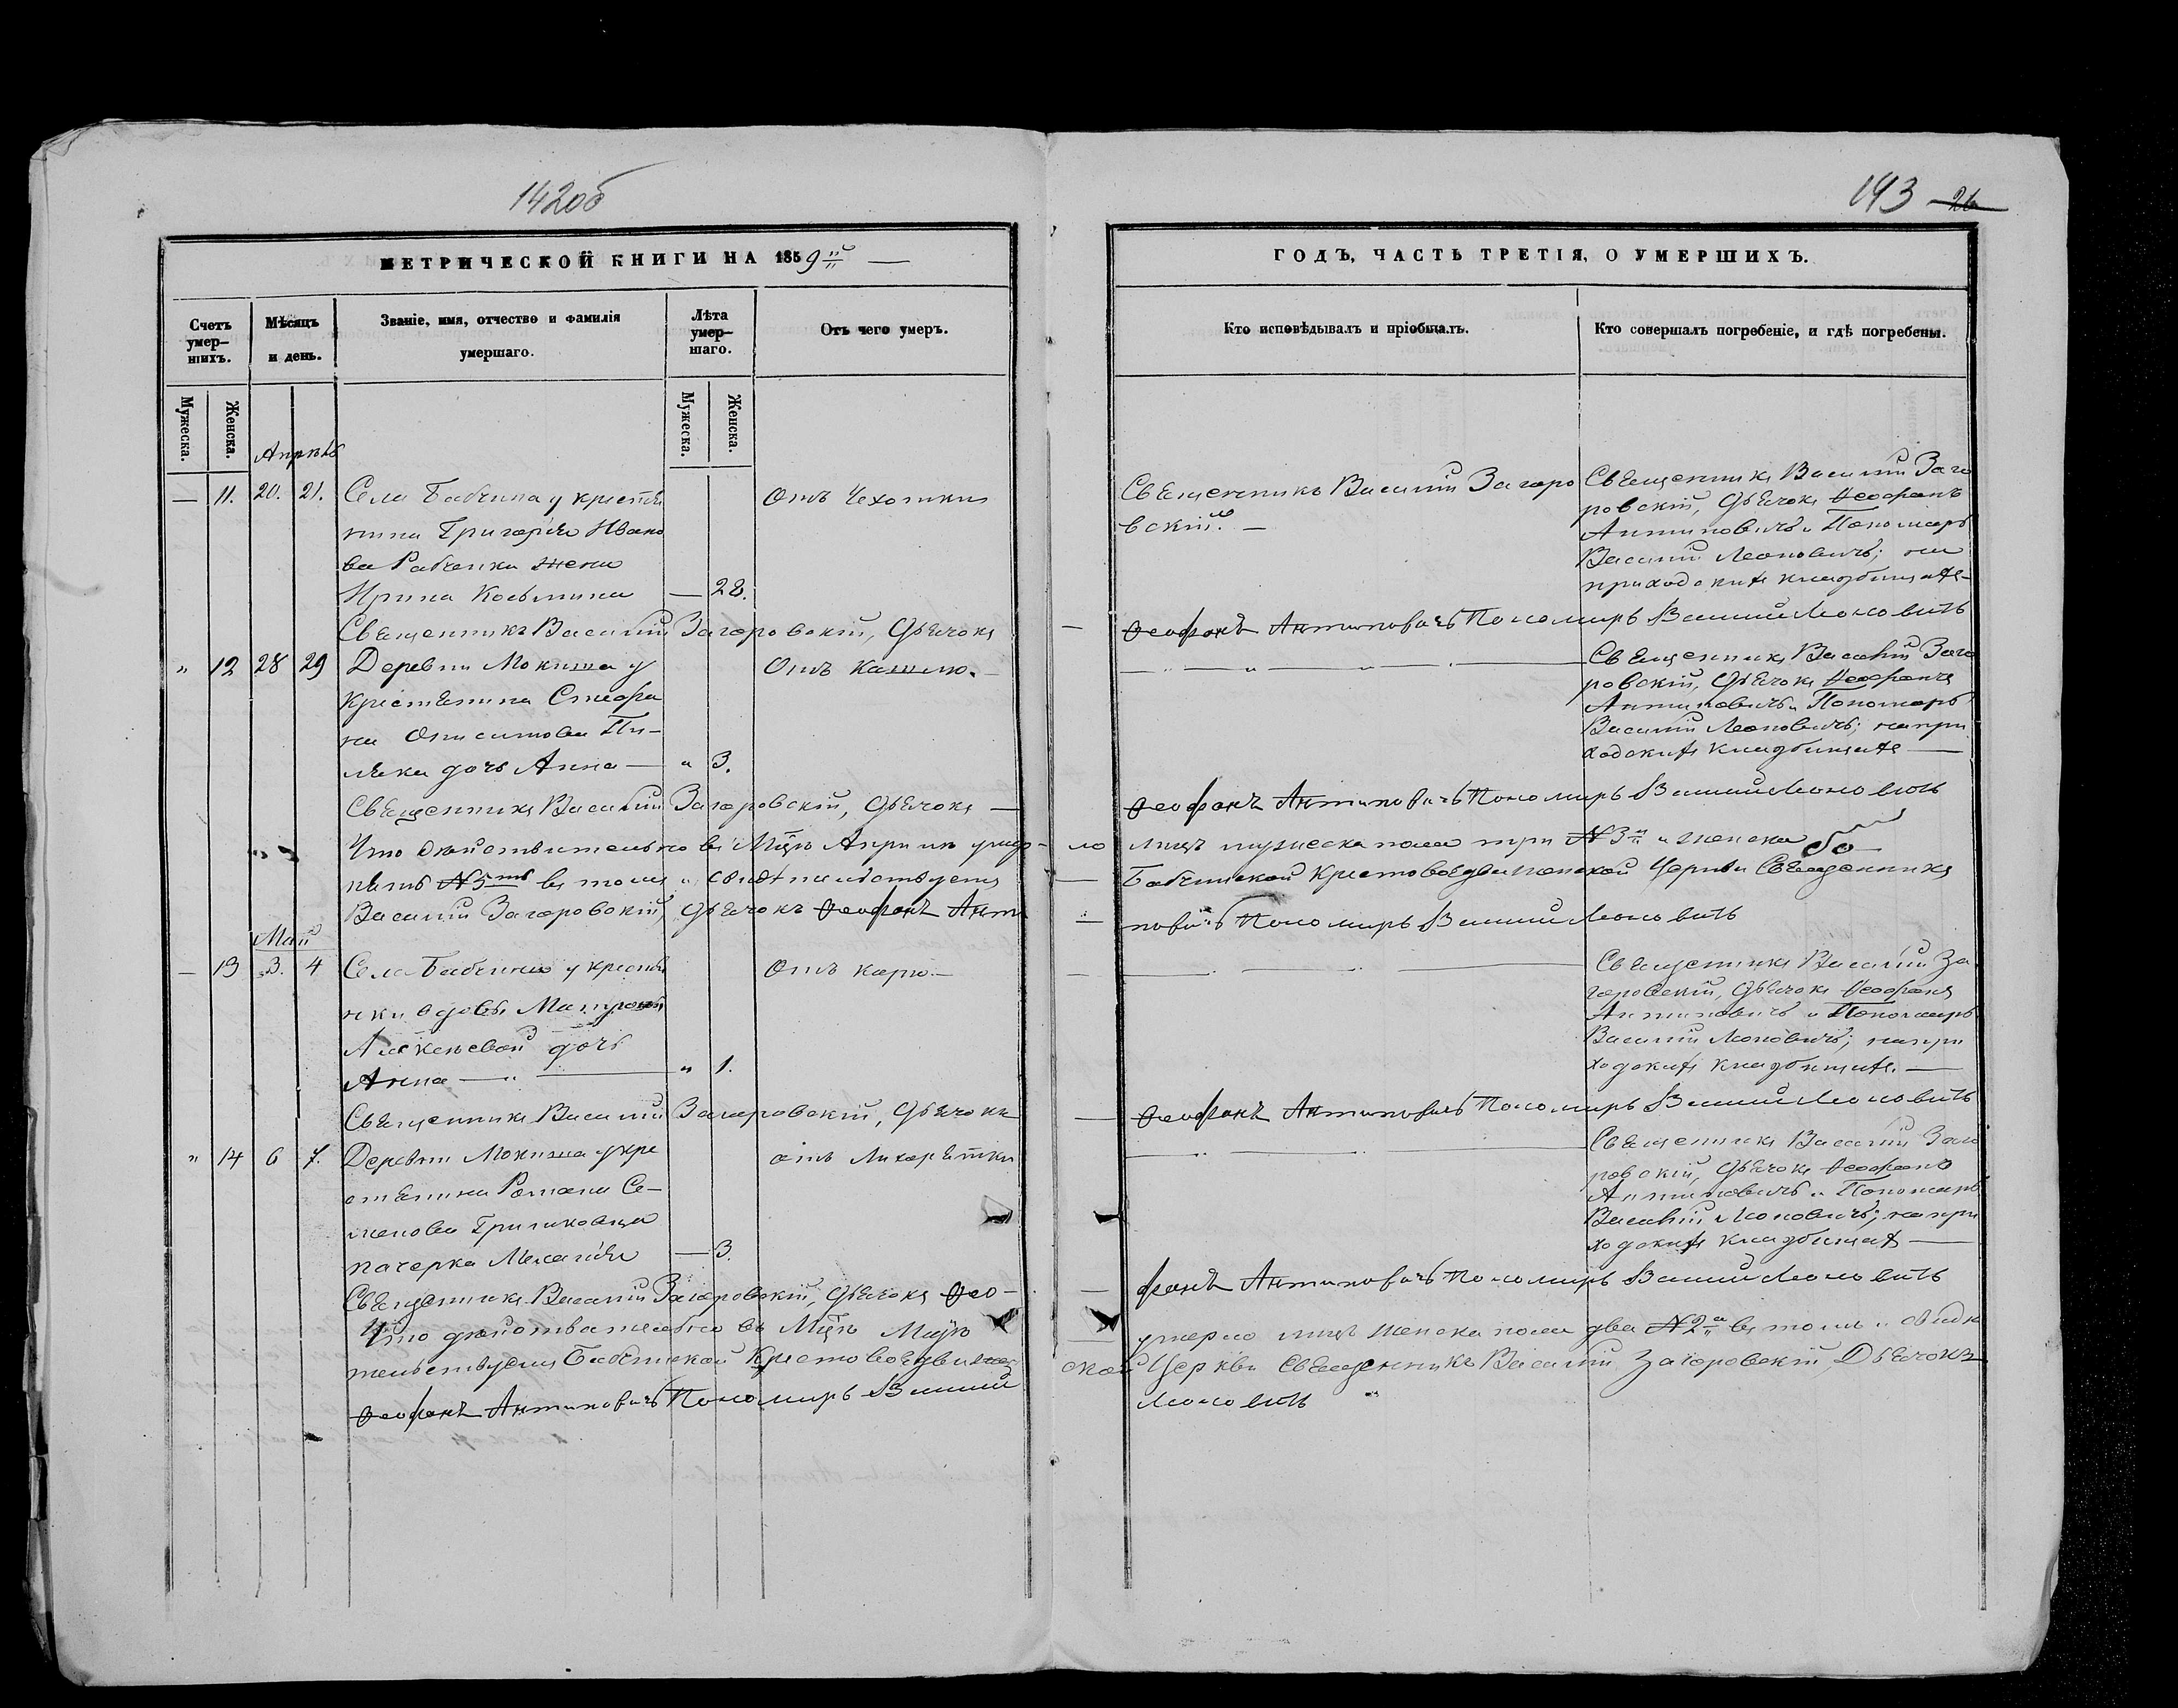 142об
143 26
МЕТРИЧЕСКОЙ КНИГИ НА 1859й
ГОДЪ, ЧАСТЬ ТРЕТІЯ, О УМЕРШИХЪ.
Счетъ умер-шихъ.
Мѣсяцъ и день.
Званіе, имя, отчество и фамилія умершаго.
Лѣта умер-шаго.
Отъ чего умеръ.
Кто исповѣдывалъ и пріобщалъ.
Кто совершалъ погребеніе, и гдѣ погребены.
Мужеска.
Женска.
Мужеска.
Женска.
Апрѣль
— 11. 20. 21. Села Бабчина у крестья
нина Григорія Ивано
ва Рабченка жена
Ирина Козьмина — 28.
Отъ Чехотки
Священникъ Василій Загоро
вскій. —
Священникъ Василій Заго
ровскій, Дьячокъ Ѳеофанъ
Антиповичъ и Пономарь
Василій Леоновичъ; на
приходскомъ кладбищѣ —
Священникъ Василій Загоровскій, Дьячокъ — Ѳеофанъ Антиповичъ Пономарь Василий Леоновичъ
" 12 28 29 Деревни Мокиша у
крестьянина Стефа
на Онисимова Пи-
ляка дочь Анна — " 3.
Отъ кашлю.
Священникъ Василій Заго
ровскій, Дьячокъ Ѳеофанъ
Антиповичъ и Пономарь
Василій Леоновичъ; на при
ходскомъ кладбищѣ —
Священникъ Василій Загоровскій, Дьячокъ — Ѳеофанъ Антиповичъ Пономарь Василий Леоновичъ
Что дѣйствительно въ Мцѣ Априлѣ умер-ло лицъ мужеска пола три №3й и женска
пять №5ть въ томъ и свидѣтельствуемъ — Бабчинской Крестовоздвиженской Церкви Священникъ
Василій Загоровскій, Дьячокъ Ѳеофанъ Анти — повичъ Пономарь Василий Леоновичъ
Май
— 13 3. 4 Села Бабчина у крестьян
ки вдовы Матроны
Алексѣевой дочь
Анна — " 1.
Отъ кори —
Священникъ Василій За
горовскій, Дьячокъ Ѳеофанъ
Антиповичъ и Пономарь
Василій Леоновичъ; на при
ходскомъ кладбищѣ. —
Священникъ Василій Загоровскій, Дьячокъ — Ѳеофанъ Антиповичъ Пономарь Василий Леоновичъ
" 14 6 7. Деревни Мокиша у кре
стьянина Романа Се-
менова Гриликовца
пачерка Меланія — 3.
отъ Лихорѣтки
Священникъ Василій Заго
ровскій, Дьячокъ Ѳеофанъ
Антиповичъ и Пономарь
Василій Леоновичъ; на при
ходскомъ кладбищѣ —
Священникъ Василій Загоровскій, Дьячокъ Ѳео- — фанъ Антиповичъ Пономарь Василий Леоновичъ
Что дѣйствительно въ Мцѣ Маѣ умерло лицъ женска пола два №2а въ томъ и свидѣ
тельствуемъ Бабчинской Крестовоздвижен ской Церкви Священникъ Василій Загоровскій, Дьячокъ
Ѳеофанъ Антиповичъ Пономарь Василий Леоновичъ